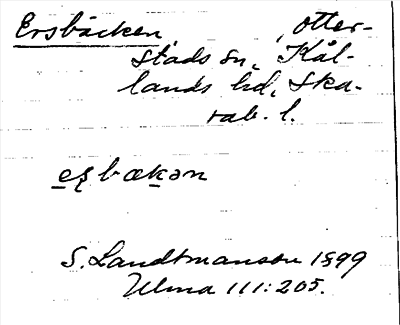 Ersbäcken, , Otter-
stads sn, Kål-
lands hd, Ska-
rab. l.
eʂbækən
S. Landtmanson 1899
Ulma 111:205.